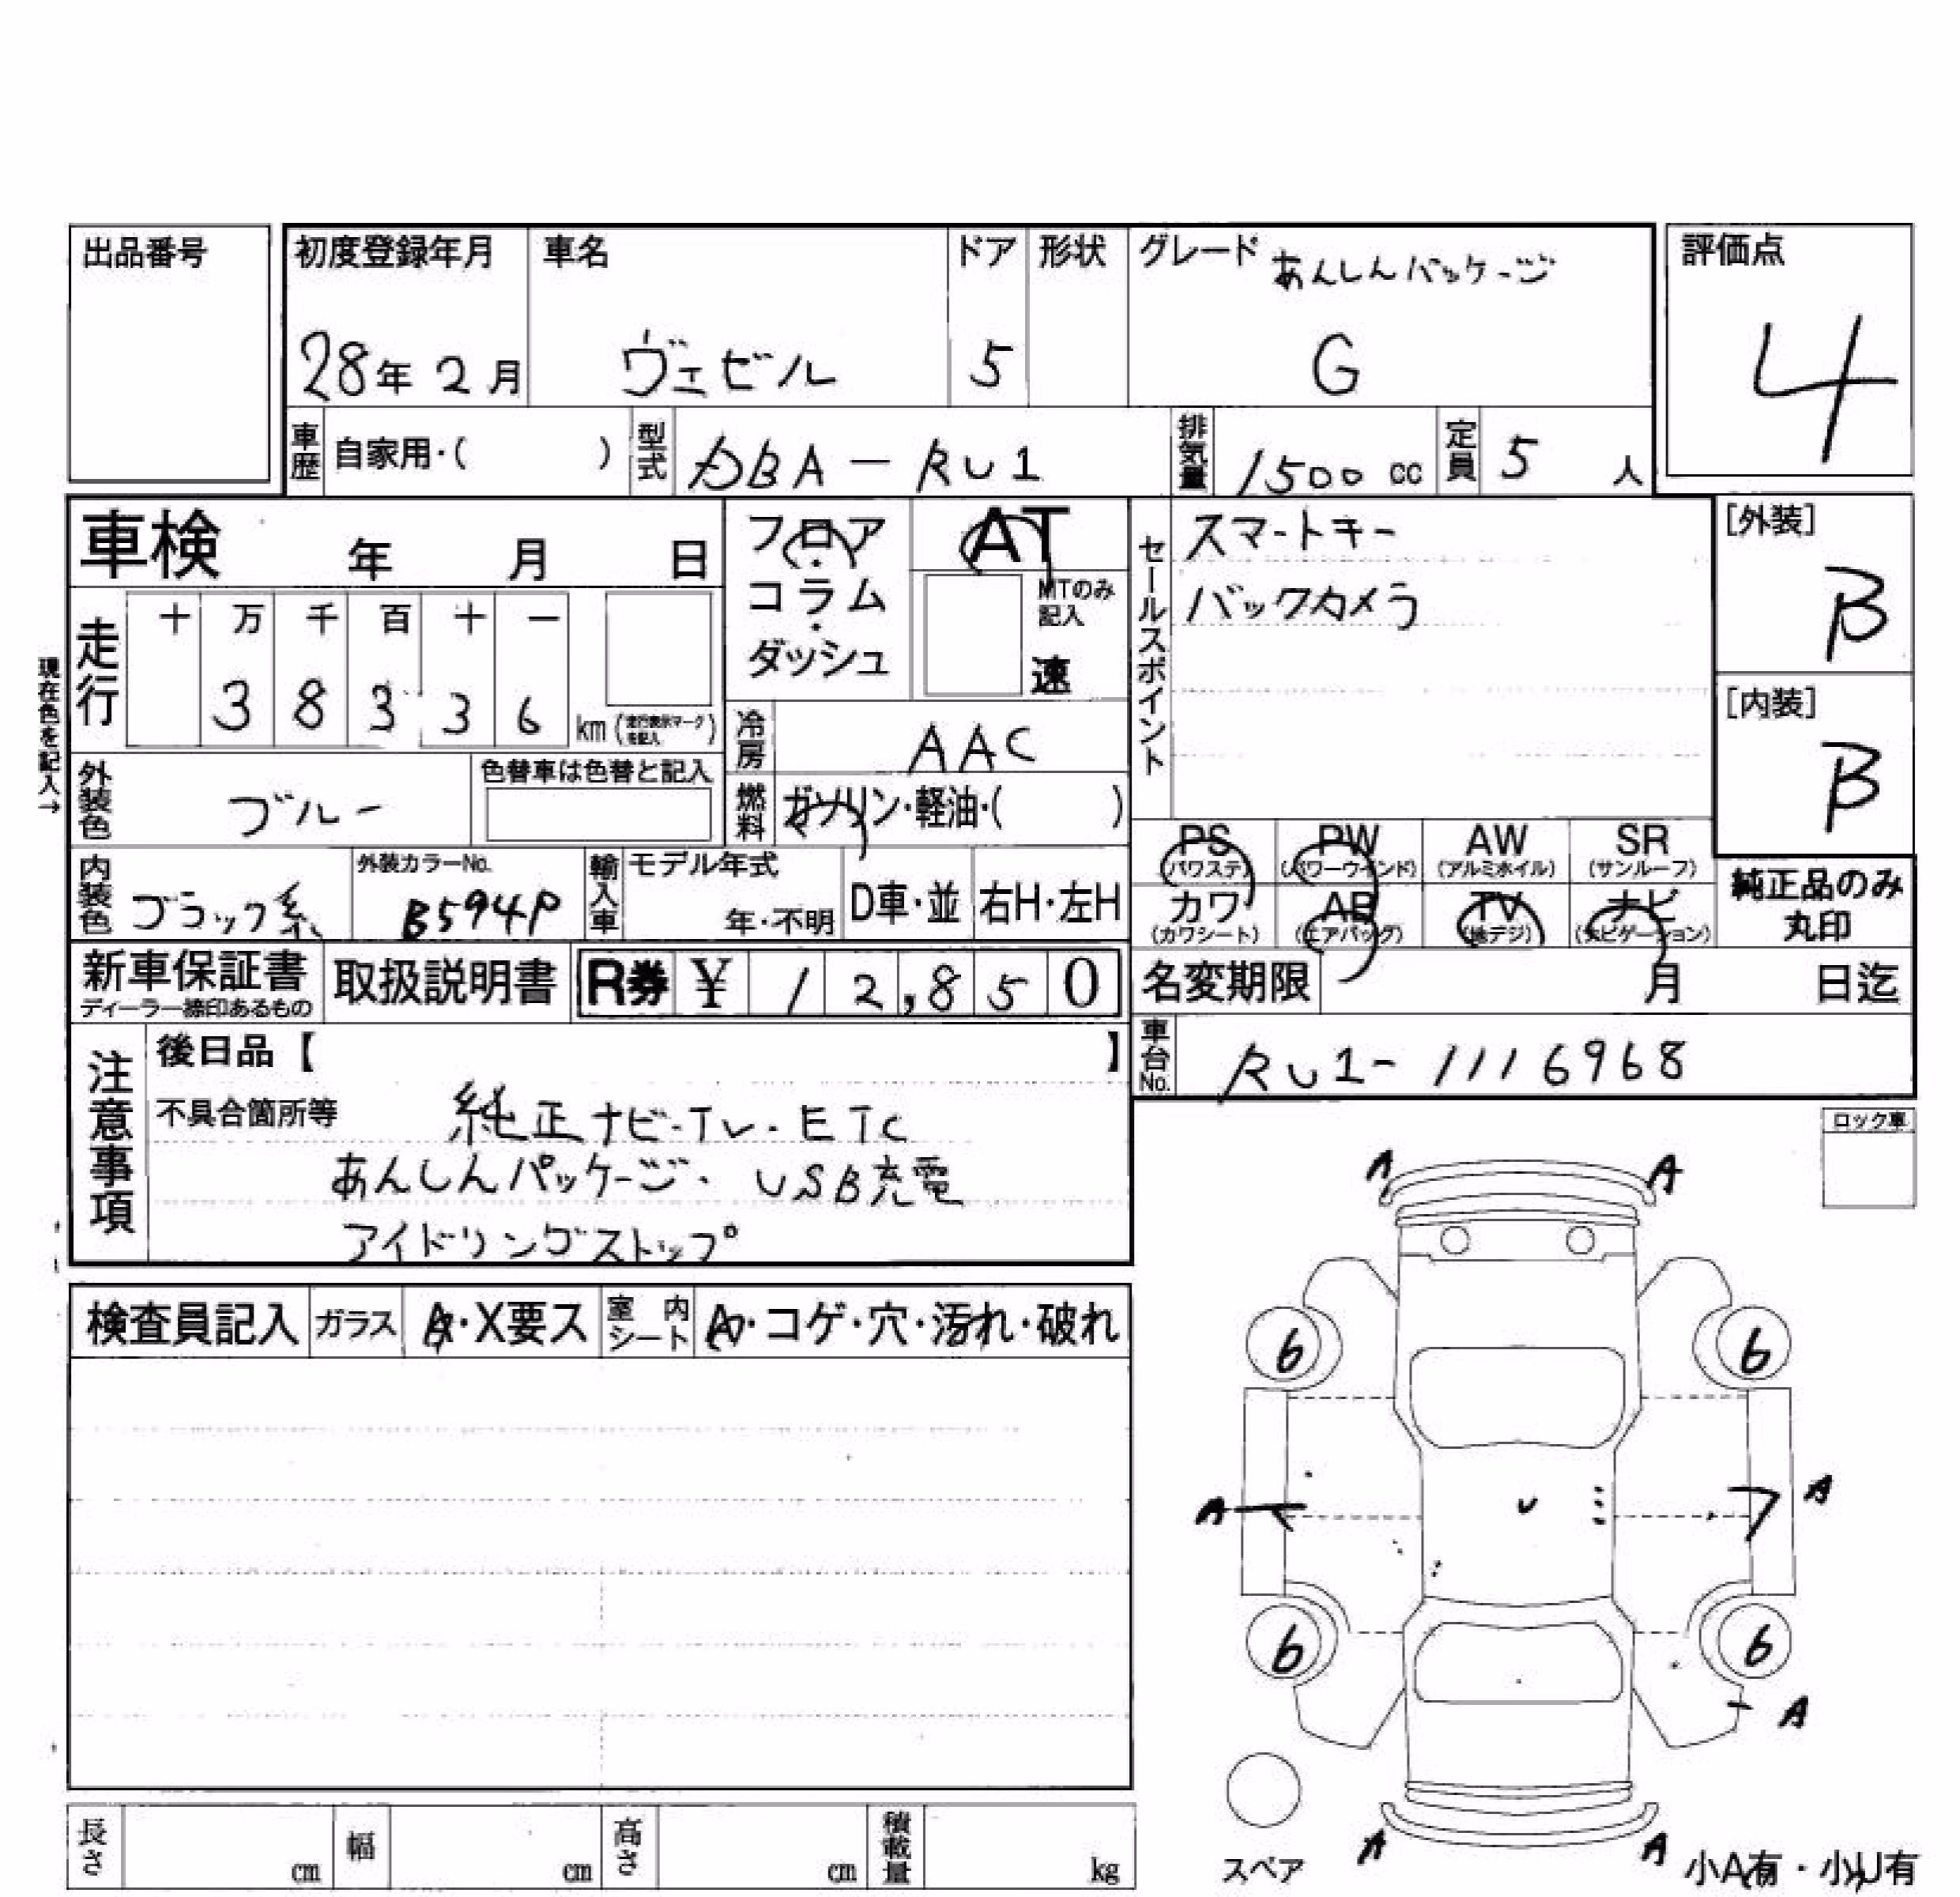 出品番号
初度登録年月
28年 2月
車名
ヴェゼル
ドア
5
形状
グレード
あんしんパッケージ
G
評価点
4
車歴
自家用・( )
型式
DBA-RU1
排気量
1500 cc
定員
5 人
車検 年 月 日
フロア
・
コラム
・
ダッシュ
AT
MTのみ
記入
速
セールスポイント
スマートキー
バックカメラ
[外装]
B
[内装]
B
現在色を記入→
走行
十 万 千 百 十 一
3 8 3 3 6
km (走行表示マークを記入)
冷房
AAC
外装色
ブルー
色替車は色替と記入
燃料
ガソリン・軽油・( )
PS
(パワステ)
PW
(パワーウインド)
AW
(アルミホイル)
SR
(サンルーフ)
カワ
(カワシート)
AB
(エアバッグ)
TV
(地デジ)
ナビ
(ナビゲーション)
純正品のみ
丸印
内装色
ブラック系
外装カラーNo.
B594P
輸入車
モデル年式
年・不明
D車・並
右H・左H
新車保証書
ディーラー捺印あるもの
取扱説明書
R券 ¥ 12,850
名変期限 月 日迄
注意事項
後日品【 】
車台No.
RU1-1116968
不具合箇所等
純正ナビ・TV・ETC
あんしんパッケージ・USB充電
アイドリングストップ
ロック車
A A
検査員記入
ガラス
A・X要ス
室内シート
A・コゲ・穴・汚れ・破れ
6 6
A U A
6 6
A
スペア
A A
小A有・小U有
長さ cm
幅 cm
高さ cm
積載量 kg